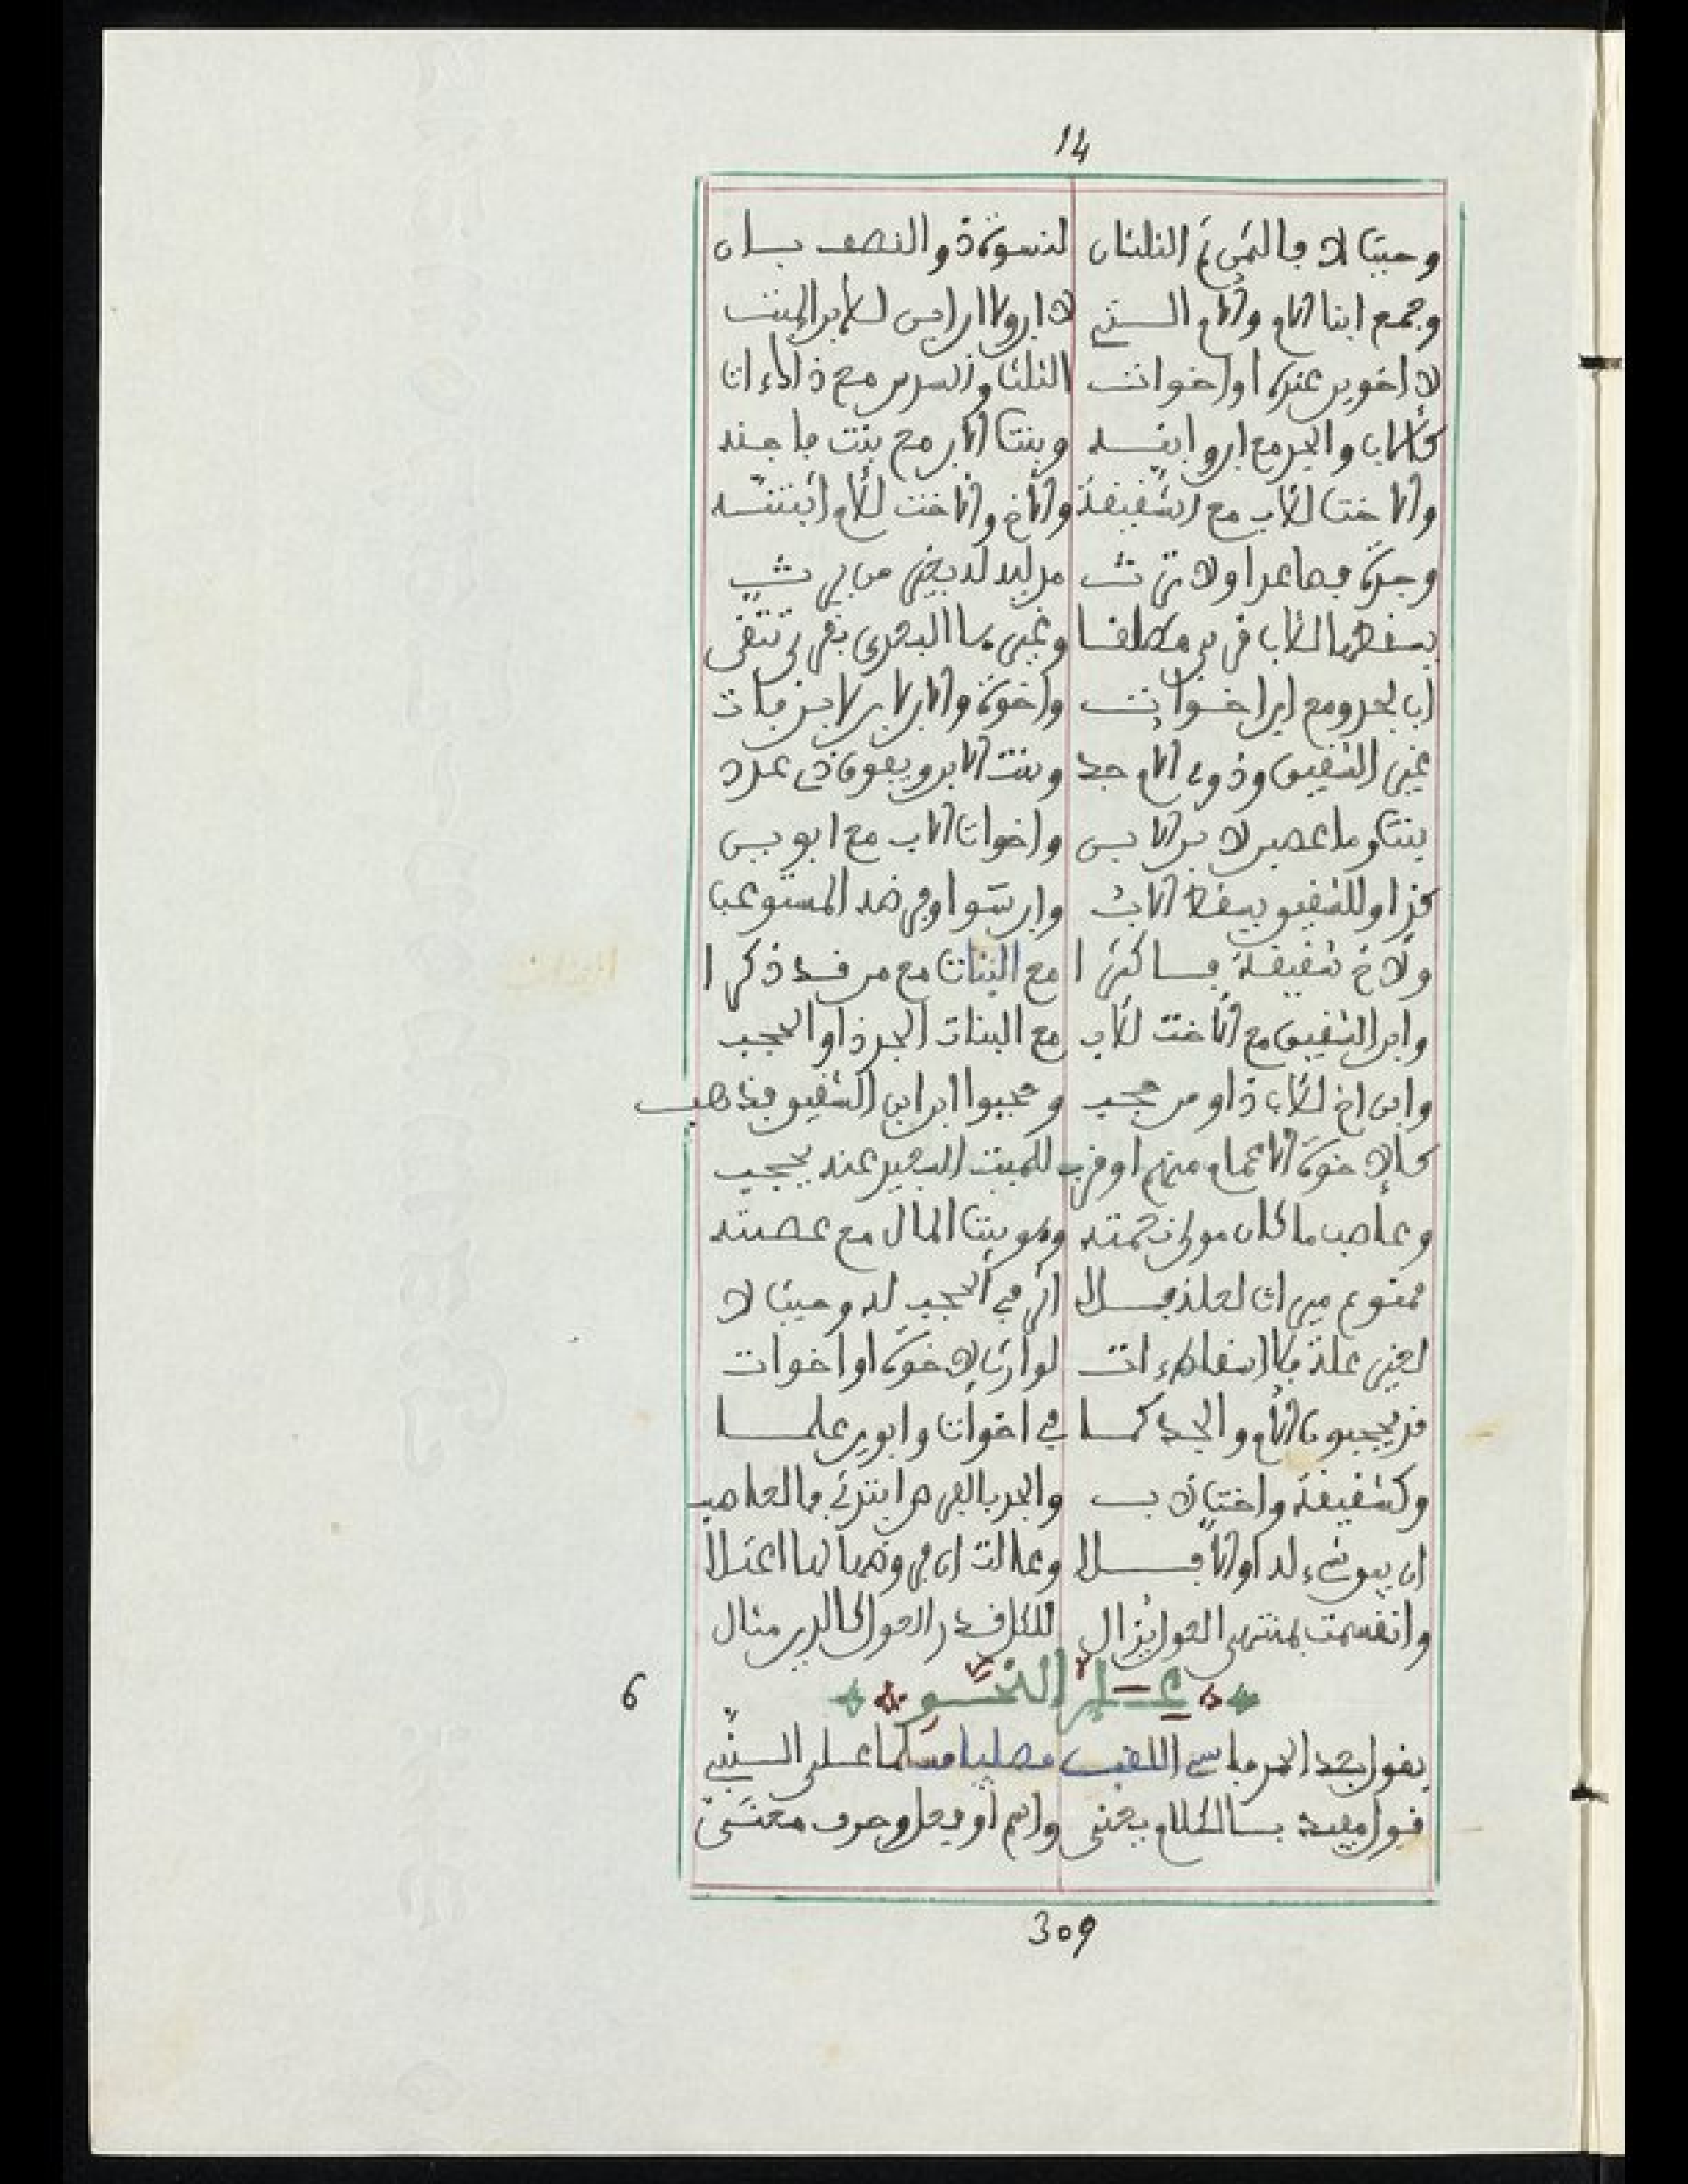 14
وحيثا لا فالثمن ثم الثلثان لنسوة ذو النصف بان
وجمع ابنا الام والام الستي لا ابن ولا ابن ابن للابن الميت
لا اخوين عنده او اخوات الثلثا والسدس مع ذا الاب ات
كالاب والجد مع ابن وابنه وبنت الابن مع بنت ما جنه
والاخت للاب مع الشقيقة والاخ والاخت للام اثبتته
وجدة فصاعدا ولا ترث من
يسقطها للاب قربى مطلقا وغير ها البعدى بقربى تنتقى
اب لجد ومع ابن اخوات واخوة والابن لابن لابن فات
غير الشقيق وذوي الام جد وبنت الابن ويفوق ذي عدد
بنت وما عصب لابن الابن واخوات الاب مع ابوين
كذا وللشقيق يسقط الاب وان سووا وفي ضد المستوعب
ولاخ شقيقة فاكثرا مع البنات مع من قد ذكرا
وابن الشقيق مع الاخت للاب مع البنات الجد ذا والحجب
وابن اخ للاب ذا ومن حجب وحجبوا ابن ابن الشقيق فذهب
كالاخوة الاعمام منهم اوقرب للميت البعيد عنه يحجب
وعاصب ما كان مولى نعمته وهو بيت المال مع عصبته
ممنوع ميراث لعلة فلا اثر في الحجب له وحيث لا
لغير علة فلا اسقاط ات لوارث لاخوة او اخوات
قد يحجبون الام والجد كما في اخوات وابوين علما
وكشقيقة واخت لاب والجد بالفرض ابتدئ فالعاصب
ان يبق شيء له والا فلا وعالت ان فروضها لها اعتلا
وانقسمت بمنتهى العول يزال للكل قدر العول كالدين مثال
علم النحو
6
يقول بعد الحمد فاسي اللقب مصليا مسلما على النبي
قول مفيد بسالكلام يعنى واسم او فعل وحرف معنى
309